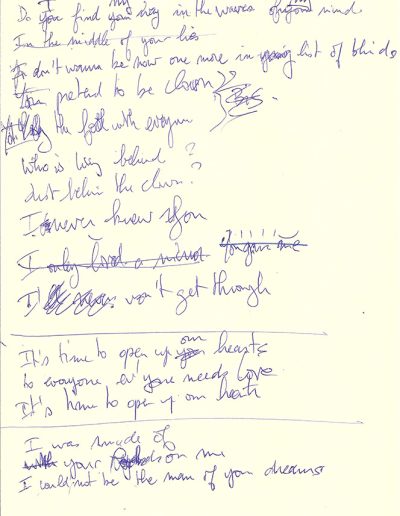 I my
Do you find your way in the waves of your mind
In the middle of your lies
I don't wanna be now one more in your list of blinds
You pretend to be clown
the with everyone
Who is lying behind?
Just behin the clown?
I never knew you
I only
I won't get through
our
It's time to open up your hearts
to everyone ev' you needs love
It's time to open up our heart
I was made of
your on me
I could not be the man of your dreams